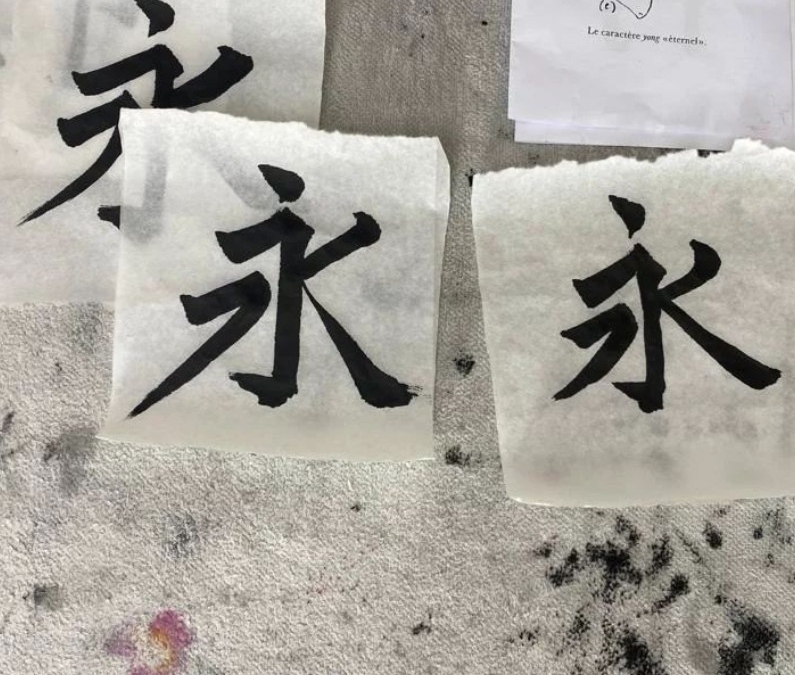 (e)
Le caractère yong «éternel».
永
永
永